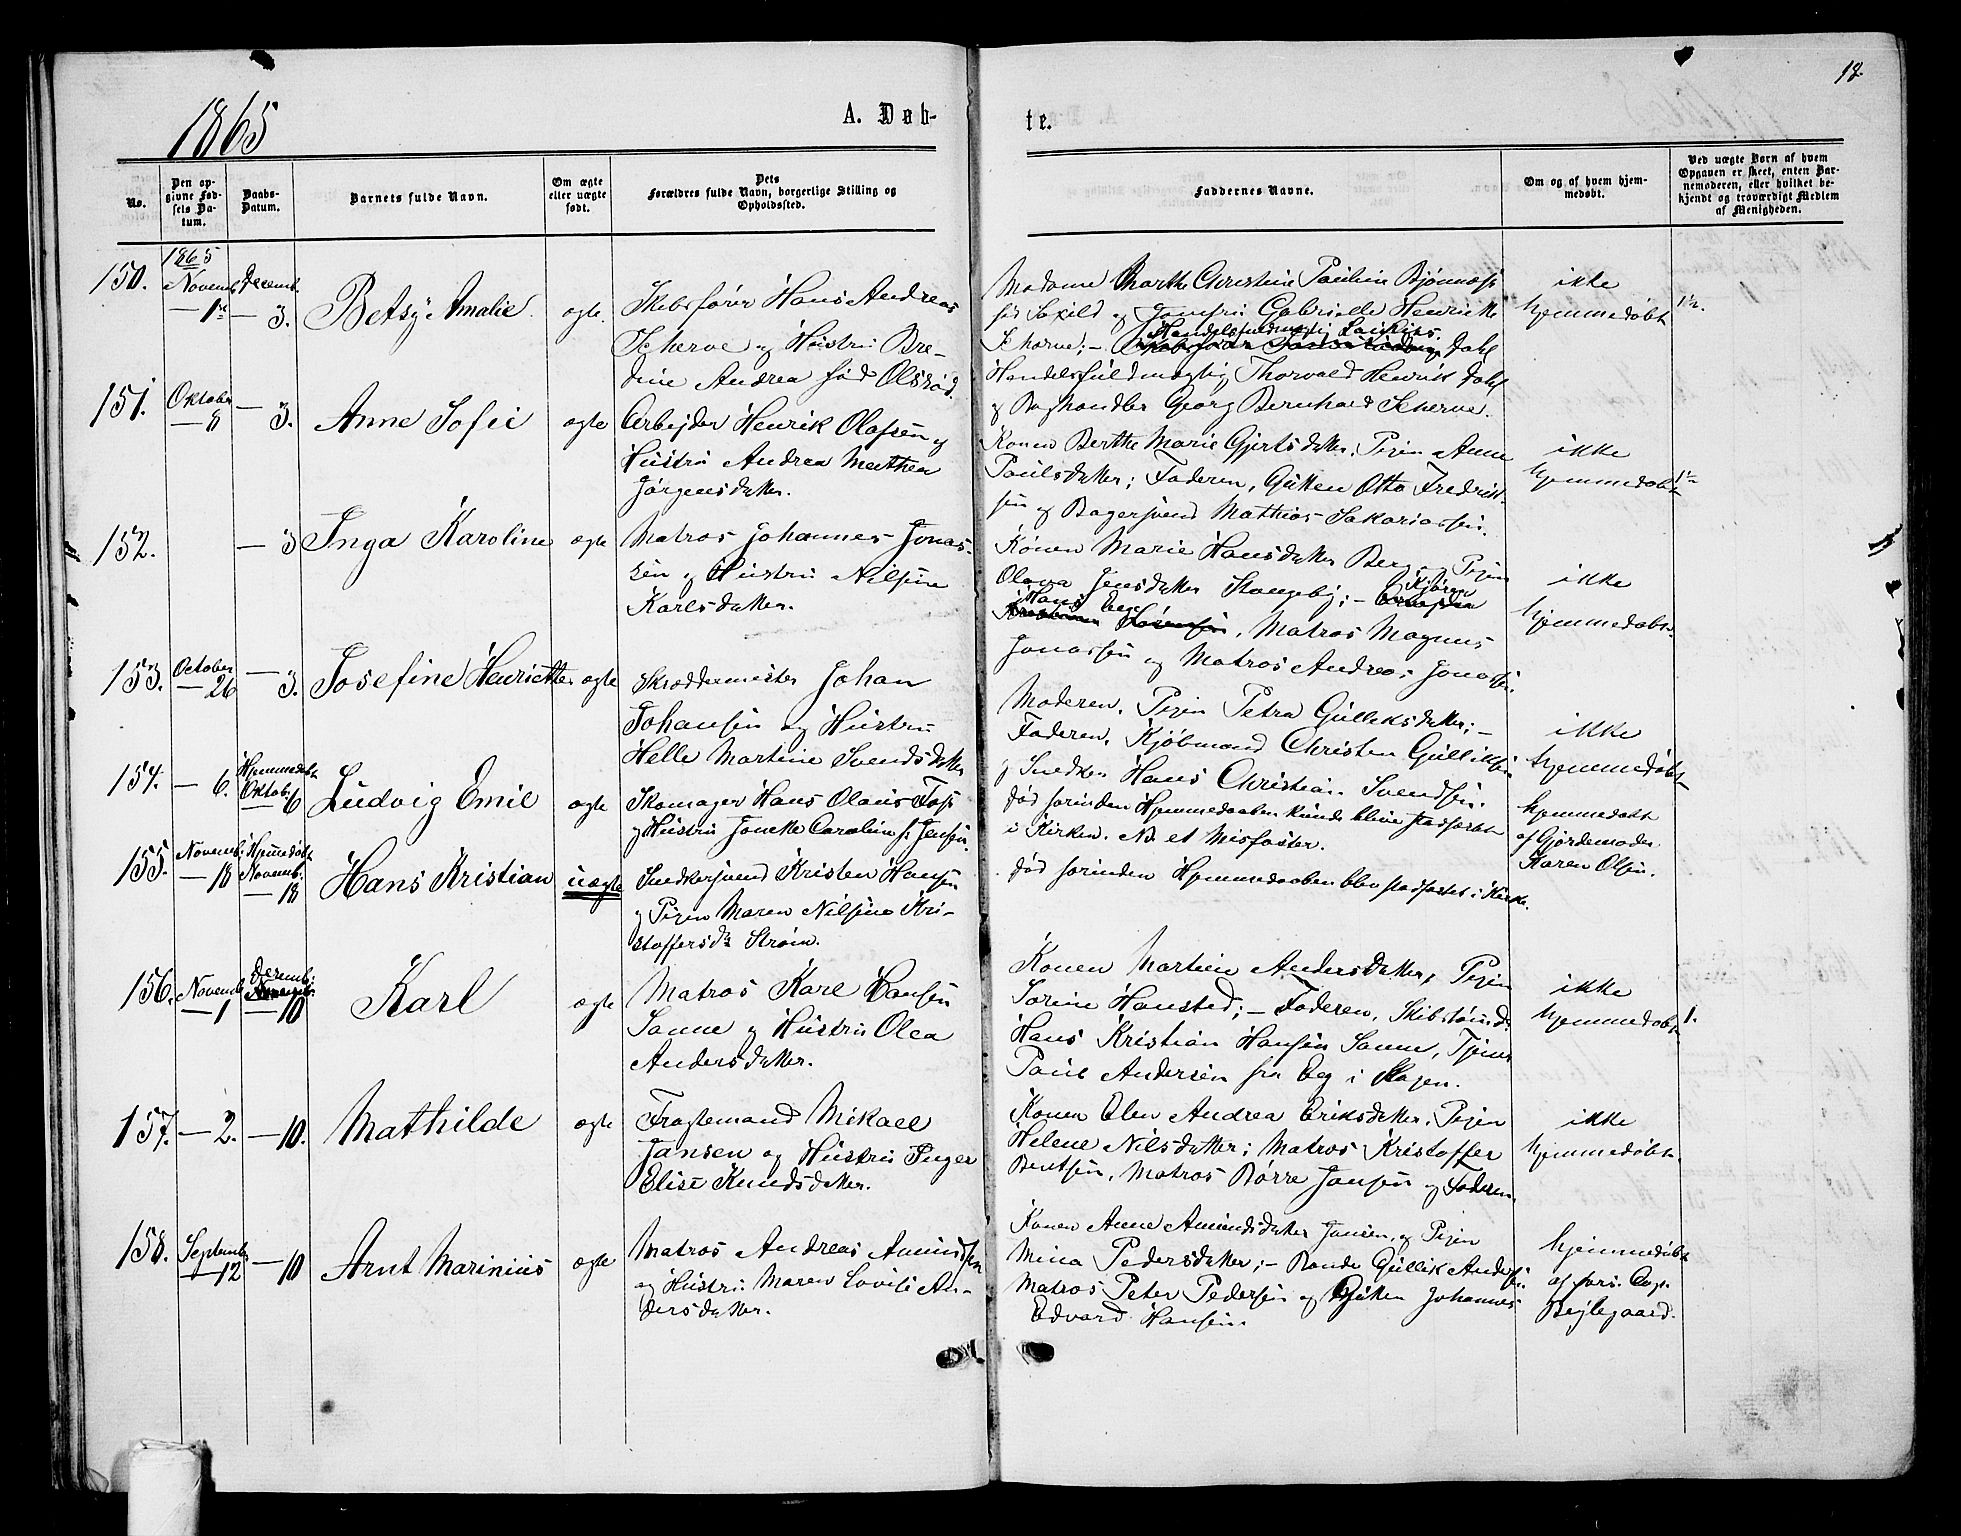 1865
A. Døb-
te.
18.
No.
Den op-
givne Fød-
sels Da-
tum.
Daabs-
Datum.
Barnets fulde Navn.
Om ægte
eller uægte
født.
Dets
Forældres fulde Navn, borgerlige Stilling og
Opholdssted.
Faddernes Navne.
Om og af hvem hjem-
medøbt.
Ved uægte Børn af hvem
Opgaven er skeet, enten Bar-
nemoderen, eller hvilket be-
kjendt og troværdigt Medlem
af Menigheden.
150.
1865
Novemb.
— 1ste
Decemb.
— 3.
Betsy Amalie.
ægte.
Skibsfører Hans Andreas
Scherve og Hustru Bre-
dine Andrea fød Olsrød.
Madame Marthe Christine Pauline Bjønnæss
fød Soxild og Jomfru Gabrielle Henrikke
Scherve; — Handelsfuldmægtig Dahl
Handelsfuldmægtig Thorvald Henrik Dahl
og Boghandler Georg Bernhard Scherve.
ikke
hjemmedøbt
1½.
151.
Oktober
— 8
— 3.
Anne Sofie
ægte
Arbejder Henrik Olafsen og
Hustru Andrea Mathea
Jørgensdatter.
Konen Berthe Marie Gjertsdatter, Pigen Anne
Paulsdatter; Faderen, Gutten Otto Fredrik-
sen og Bagersvend Mathias Sakariassen.
ikke
hjemmedøbt
1½
152.
— 3
Inga Karoline
ægte
Matros Johannes Jonas-
sen og Hustru Nilsine
Karlsdatter.
Konen Marie Hansdatter Berg og Pigen
Olava Jensdatter Stangeby; —
Hans, Matros Magnus
Jonassen og Matros Andreas Jonassen.
ikke
hjemmedøbt.
153.
October
— 26
— 3.
Josefine Henriette
ægte
Skræddermester Johan
Johansen og Hustru
Helle Martine Svendsdatter
Moderen, Pigen Petra Gulliksdatter; —
Faderen, Kjøbmand Christen Gulliksen
og Snedker Hans Christian Svendsen.
ikke
hjemmedøbt
154.
— 6.
Hjemmedøbt
Oktob.
— 6
Ludvig Emil
ægte
Skomager Hans Olaus Foss
og Hustru Janekke Caroline f. Jensen.
død forinden Hjemmedaaben kunde blive stadfæstet
i Kirken. NB et Misfoster.
hjemmedøbt
af Gjordemoder
Karen Olsen.
155.
Novemb.
— 18
Hjemmedøbt
Novemb.
— 18
Hans Kristian
uægte
Snedkersvend Kristen Hansen
og Pigen Maren Nilsine Kri-
stoffersdtr Strøm.
død forinden Hjemmedaaben blev stadfæstet i Kirke.
156.
Novemb.
— 1
Decemb.
— 10
Karl
ægte
Matros Karl Hansen
Sanne og Hustru Olea
Andersdatter.
Konen Martine Andersdatter, Pigen
Sorine Hansted; — Faderen, Skibstømd.
Hans Kristian Hansen Sanne, Tjener
Paul Andersen fra Eeg i Slagen.
ikke
hjemmedøbt
1.
157.
— 2.
— 10.
Mathilde
ægte
Fragtemand Mikael
Jansen og Hustru Inger
Elise Knudsdatter.
Konen Elen Andrea Eriksdatter, Pigen
Helene Nilsdatter; Matros Kristoffer
Berntsen, Matros Børre Jansen og Faderen
ikke
hjemmedøbt.
158.
Septemb.
— 12
— 10
Arnt Marinius
ægte
Matros Andreas Amundsen
og Hustru Maren Lovise An-
dersdatter.
Konen Anne Amundsdatter Jansen, og Pigen
Mina Pedersdatter; — Bonde Gullik Andersen
Matros Peter Pedersen og Gutten Johannes
Edvard Hansen.
hjemmedøbt
af fors. Capt.
Bejlegaard.